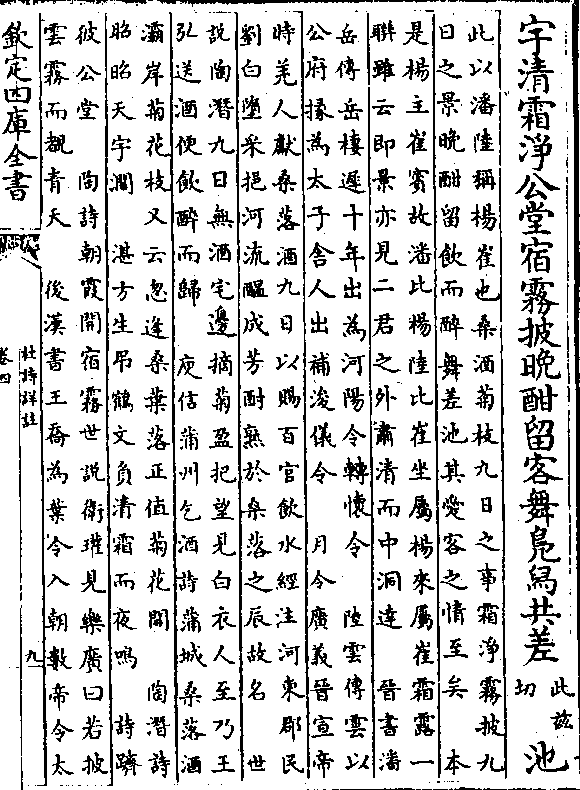 宇清霜淨公堂宿霧披晚酣留客舞鳧舄共差此茲切池
此以潘陸稱楊崔也桑酒菊枝九日之事霜淨霧披九
日之景晚酣留飲而醉舞差池其愛客之情至矣　本
是楊主崔賓故潘比楊陸比崔坐屬楊來屬崔霜露一
聯雖云即景亦見二君之外肅清而中洞達　晉書潘
岳傳岳棲遲十年出為河陽令轉懷令　陸雲傳雲以
公府掾為太子舍人出補浚儀令　月令廣義晉宣帝
時羌人獻桑落酒九日以賜百官飲水經注河東郡民
劉白墮采挹河流醞成芳酎熟於桑落之辰故名　世
說陶潛九日無酒宅邊摘菊盈把望見白衣人至乃王
弘送酒使飲醉而歸　庾信蒲州乞酒詩蒲城桑落酒
灞岸菊花枝又云忽逢桑葉落正值菊花開　陶潛詩
昭昭天宇濶　湛方生弔鶴文負清霜而夜鳴　詩躋
彼公堂　陶詩朝霞開宿霧世說衛瓘見樂廣曰若披
雲霧而覩青天　後漢書王喬為葉令入朝數帝令太
欽定四庫全書
杜詩詳註
卷四
九